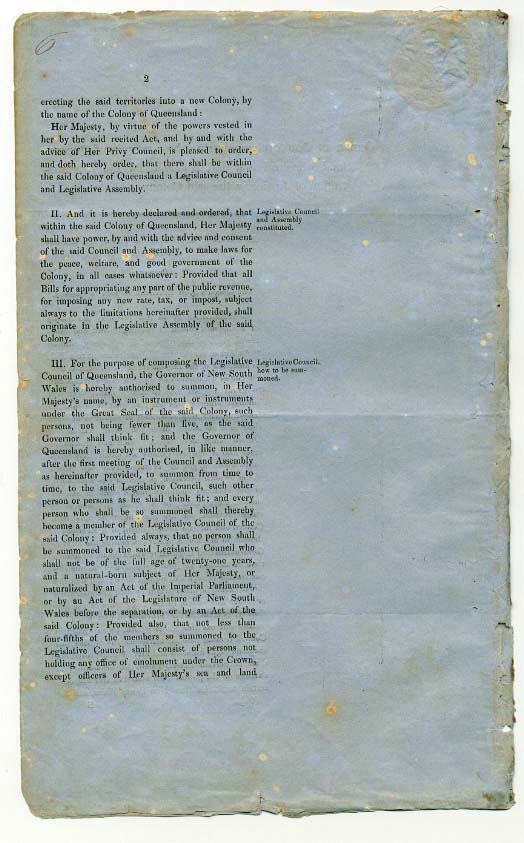 6
2
erecting the said territories into a new Colony, by
the name of the Colony of Queensland :
Her Majesty, by virtue of the powers vested in
her by the said recited Act, and by and with the
advice of Her Privy Council, is pleased to order,
and doth hereby order, that there shall be within
the said Colony of Queensland a Legislative Council
and Legislative Assembly.
II. And it is hereby declared and ordered, that
within the said Colony of Queensland, Her Majesty
shall have power, by and with the advice and consent
of the said Council and Assembly, to make laws for
the peace, welfare, and good government of the
Colony, in all cases whatsoever : Provided that all
Bills for appropriating any part of the public revenue,
for imposing any new rate, tax, or impost, subject
always to the limitations hereinafter provided, shall
originate in the Legislative Assembly of the said
Colony.
Legislative Council
and Assembly
constituted.
III. For the purpose of composing the Legislative
Council of Queensland, the Governor of New South
Wales is hereby authorised to summon, in Her
Majesty's name, by an instrument or instruments
under the Great Seal of the said Colony, such
persons, not being fewer than five, as the said
Governor shall think fit ; and the Governor of
Queensland is hereby authorised, in like manner,
after the first meeting of the Council and Assembly
as hereinafter provided, to summon from time to
time, to the said Legislative Council, such other
person or persons as he shall think fit ; and every
person who shall be so summoned shall thereby
become a member of the Legislative Council of the
said Colony : Provided always, that no person shall
be summoned to the said Legislative Council who
shall not be of the full age of twenty-one years,
and a natural-born subject of Her Majesty, or
naturalized by an Act of the Imperial Parliament,
or by an Act of the Legislature of New South
Wales before the separation, or by an Act of the
said Colony : Provided also, that not less than
four-fifths of the members so summoned to the
Legislative Council shall consist of persons not
holding any office of emolument under the Crown,
except officers of Her Majesty's sea and land
Legislative Council,
how to be sum-
moned.